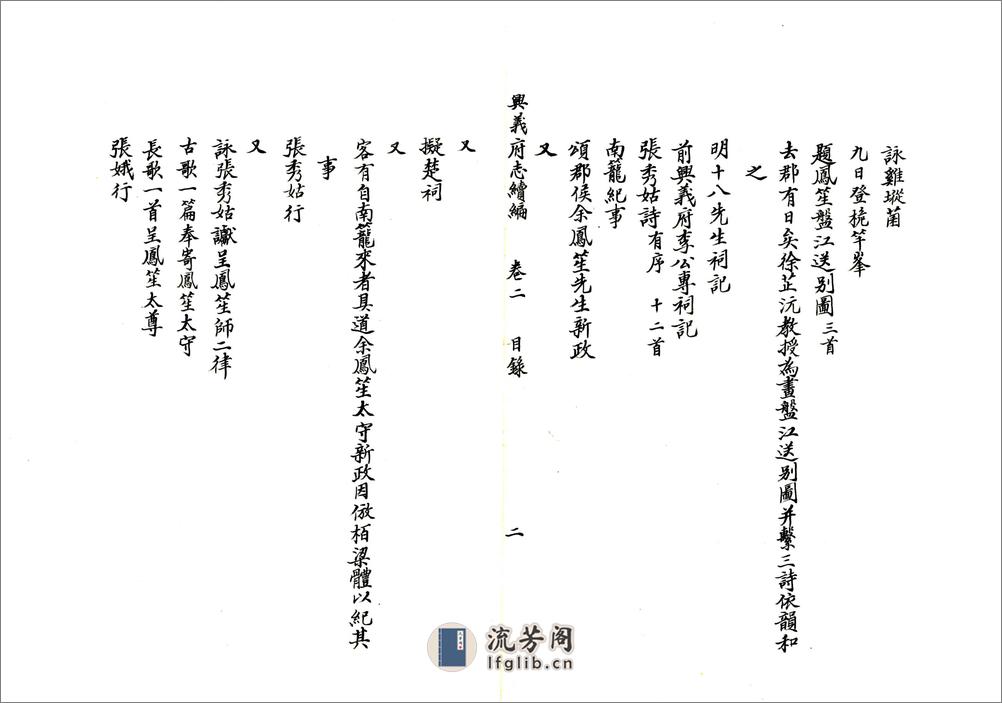 詠雞㙡菌
九日登桅竿峯
題鳳笙盤江送別圖 三首
去郡有日矣徐芷沅教授為畫盤江送別圖并繫三詩依韻和
之
明十八先生祠記
前興義府李公專祠記
張秀姑詩有序 十二首
南籠紀事
頌郡侯余鳳笙先生新政
又
興義府志續編 卷二 目錄 二
又
擬楚祠
又
客有自南籠來者具道余鳳笙太守新政因倣栢梁體以紀其
事
張秀姑行
又
詠張秀姑讞呈鳳笙師二律
古歌一篇奉寄鳳笙太守
長歌一首呈鳳笙太尊
張娥行
流芳阁
lfglib.cn